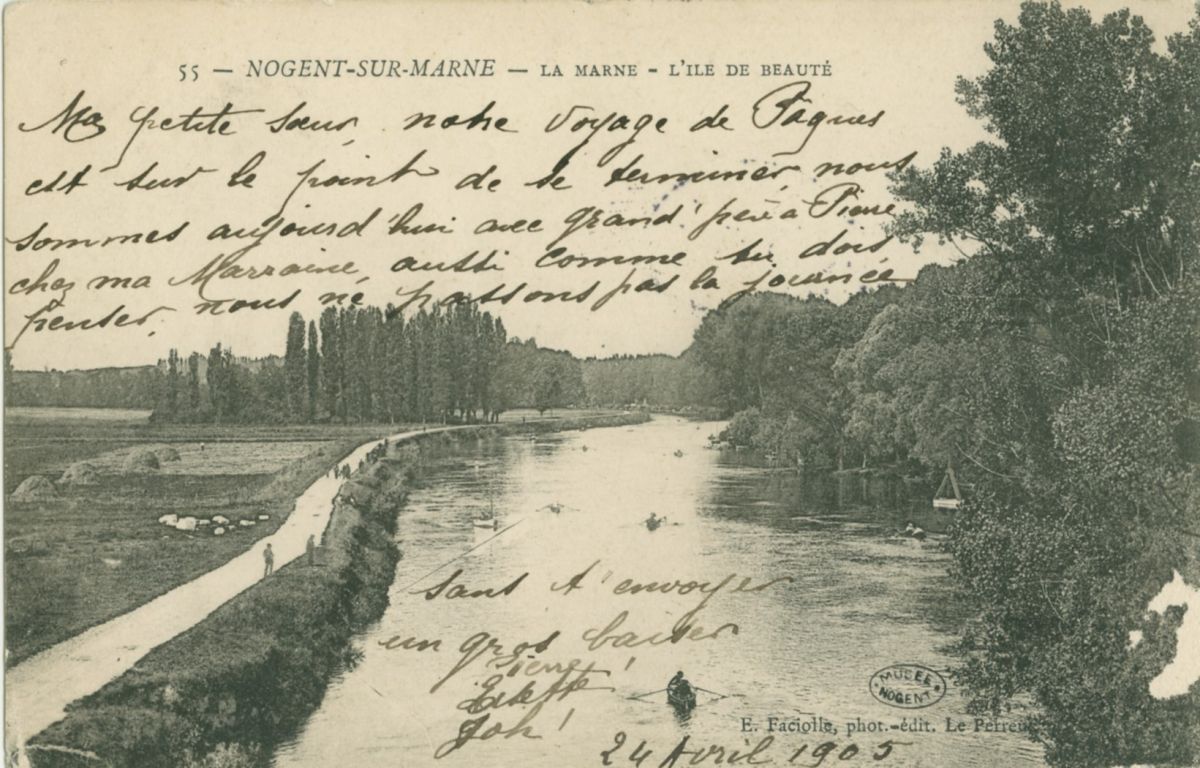 55 — NOGENT-SUR-MARNE — LA MARNE - L'ILE DE BEAUTÉ
Ma petite sœur, notre voyage de Pâques
est sur le point de se terminer, nous
sommes aujourd'hui avec grand'père à Pierre
chez ma Marraine, aussi comme tu dois
penser, nous ne passons pas la journée
sans t'envoyer
un gros baiser
Pierre
24 Avril 1905
MUSÉE
NOGENT
E. Faciolle, phot.-édit. Le Perreux